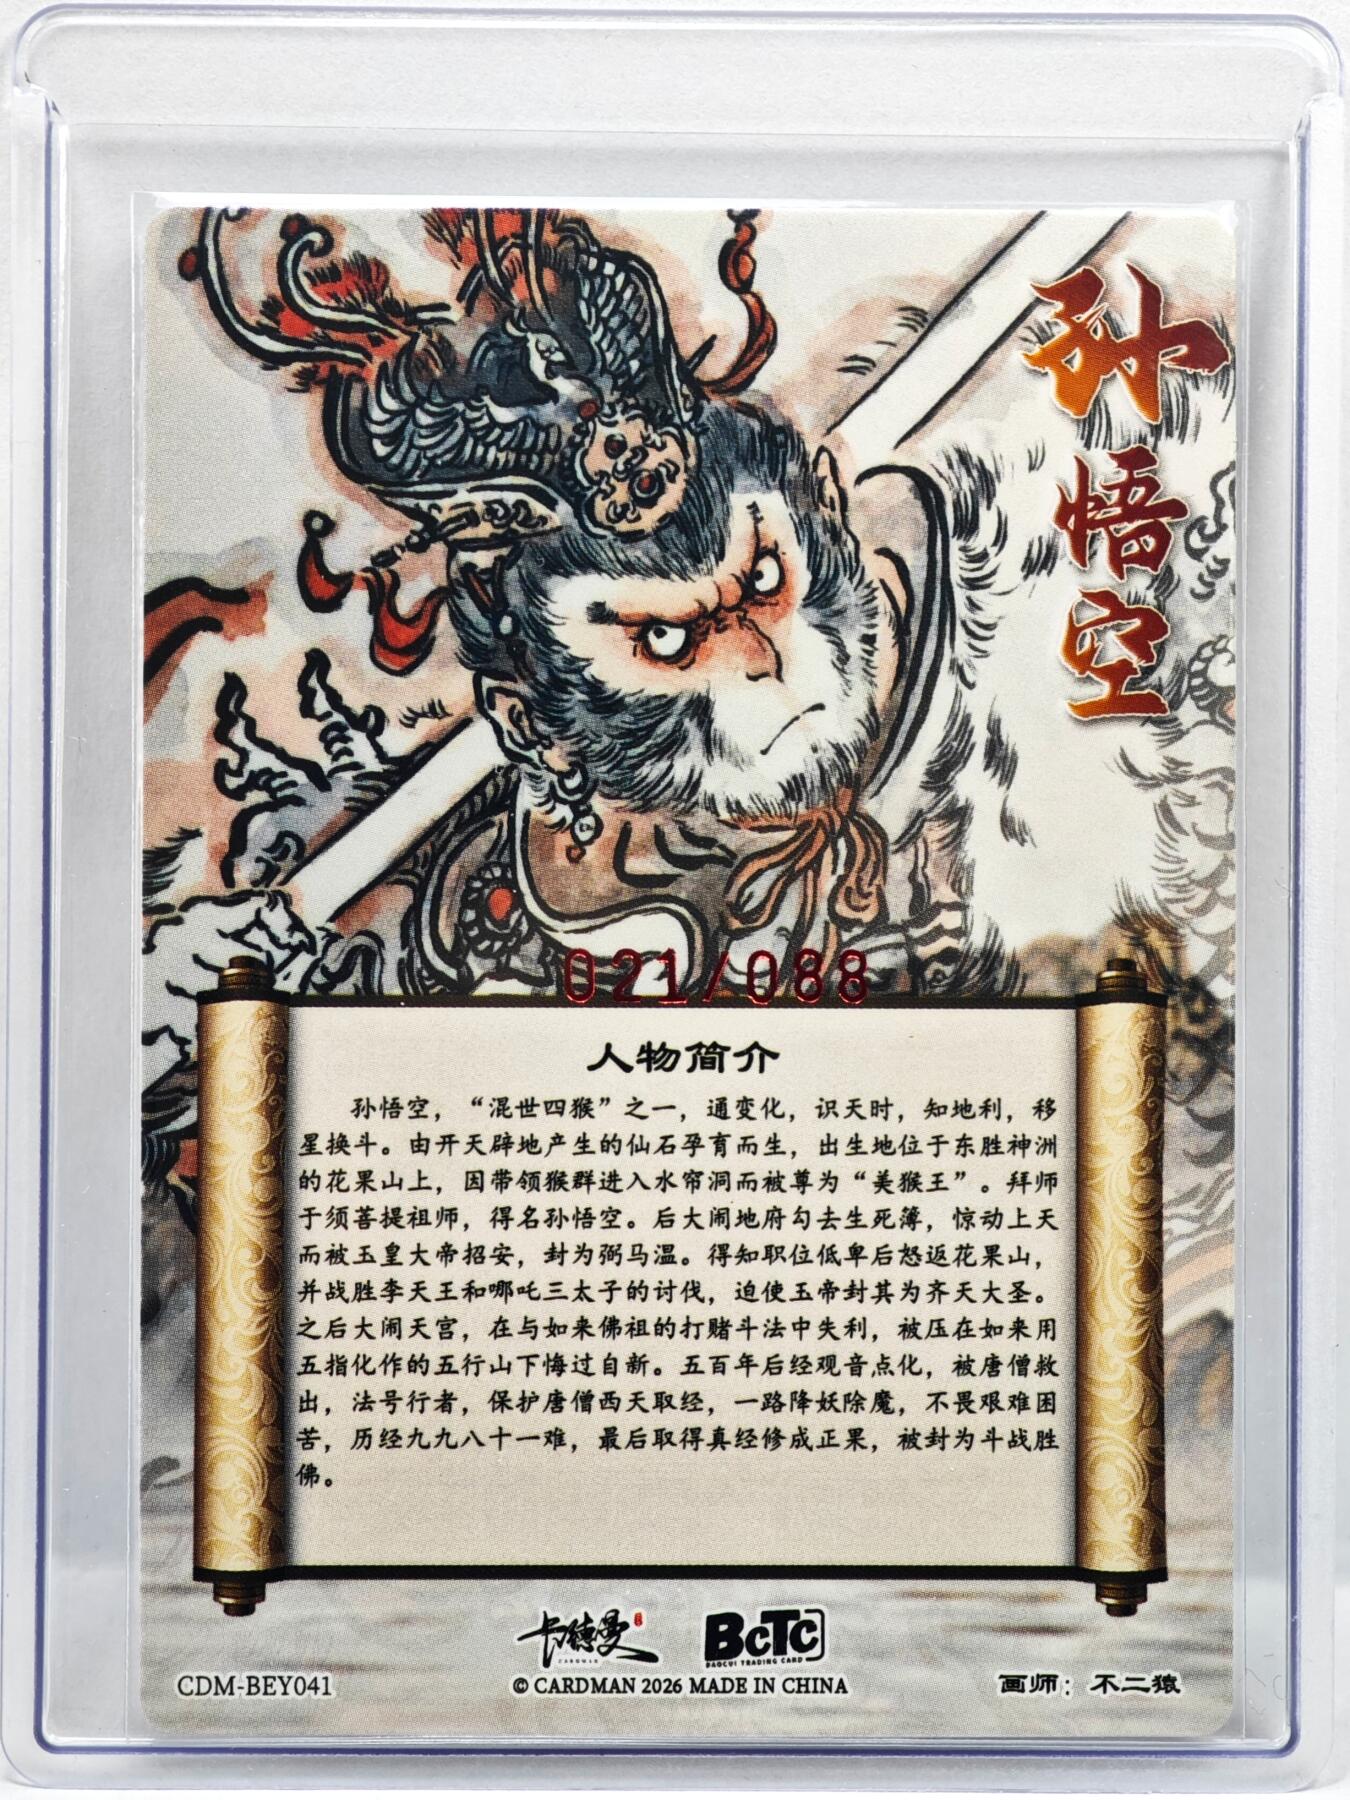 孙悟空
021/088
人物简介
孙悟空，“混世四猴”之一，通变化，识天时，知地利，移
星换斗。由开天辟地产生的仙石孕育而生，出生地位于东胜神洲
的花果山上，因带领猴群进入水帘洞而被尊为“美猴王”。拜师
于须菩提祖师，得名孙悟空。后大闹地府勾去生死簿，惊动上天
而被玉皇大帝招安，封为弼马温。得知职位低卑后怒返花果山，
并战胜李天王和哪吒三太子的讨伐，迫使玉帝封其为齐天大圣。
之后大闹天宫，在与如来佛祖的打赌斗法中失利，被压在如来用
五指化作的五行山下悔过自新。五百年后经观音点化，被唐僧救
出，法号行者，保护唐僧西天取经，一路降妖除魔，不畏艰难困
苦，历经九九八十一难，最后取得真经修成正果，被封为斗战胜
佛。
卡德曼
CARDMAN
BCTC
BAOCUI TRADING CARD
CDM-BEY041
© CARDMAN 2026 MADE IN CHINA
画师：不二猿